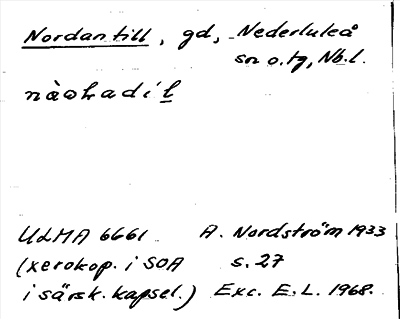 Nordantill, gd, Nederluleå
sn o. tg, Nb. l.
ULMA 6661 A. Nordström 1933
(xerokop. i SOA s. 27
i särsk. kapsel.) Exc. E. L. 1968.